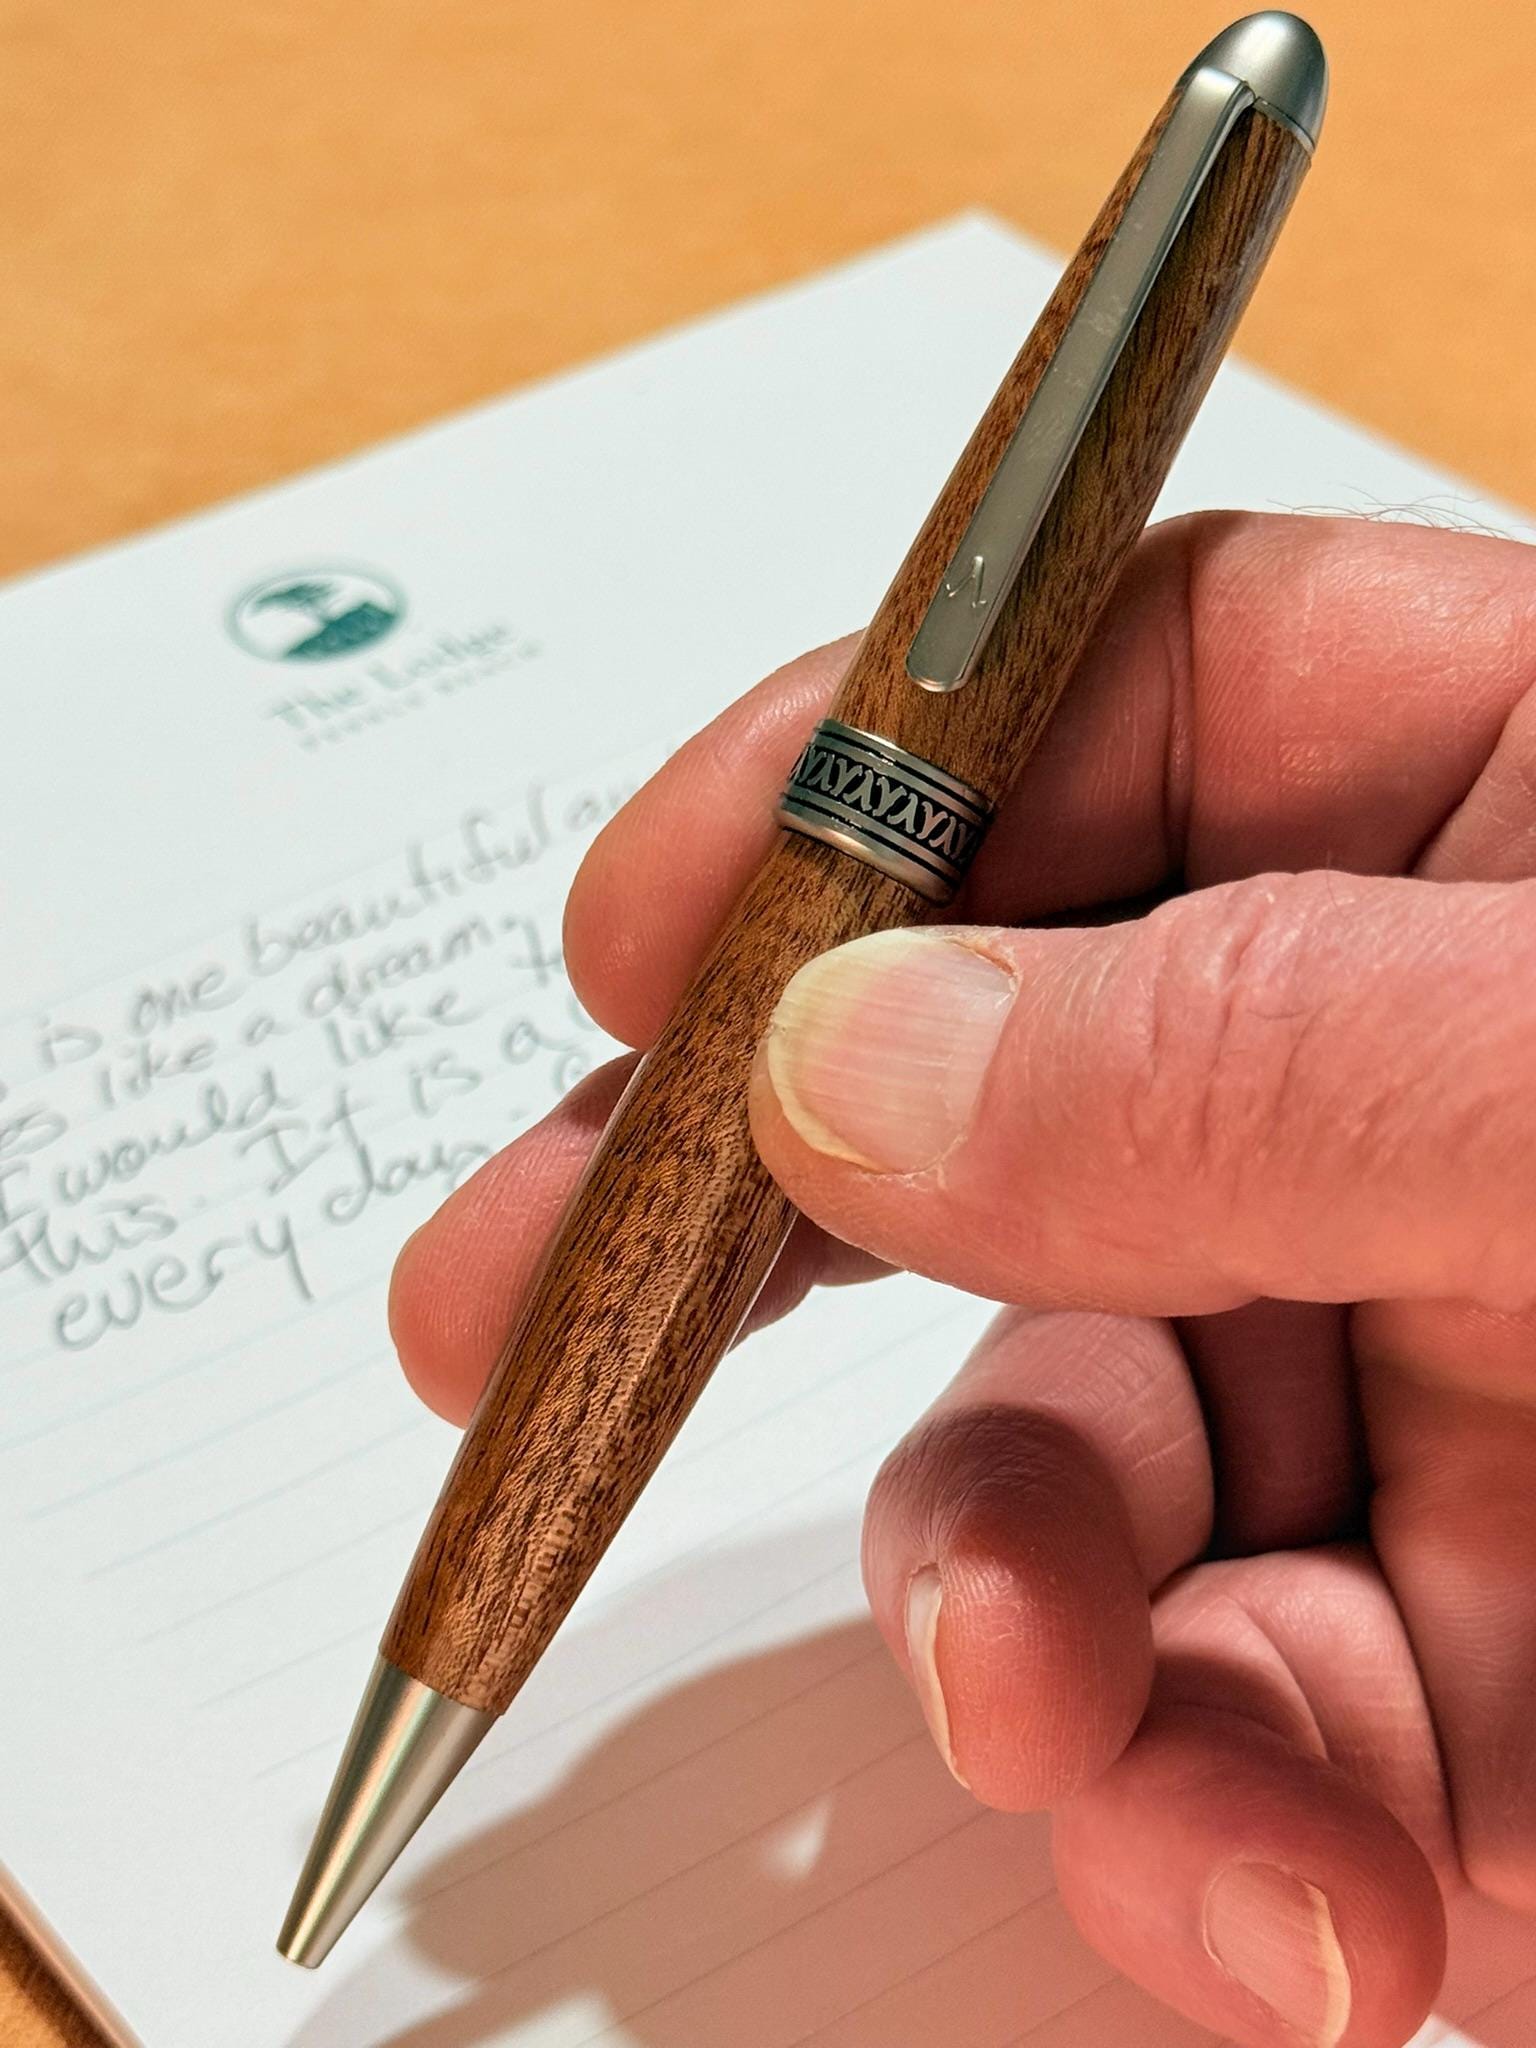 The Lodge
PEBBLE BEACH
is one beautiful
like a dream.
I would like to
this. It is a
every day.